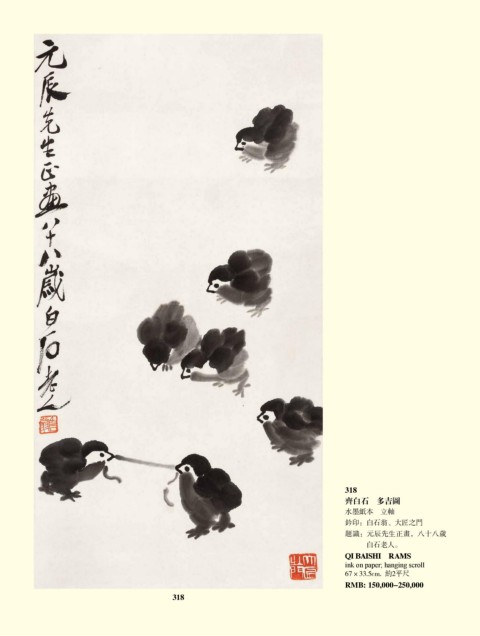 元辰先生正畫八十八歲白石老人
318
318
齊白石　多吉圖
水墨紙本　立軸
鈐印：白石翁、大匠之門
題識：元辰先生正畫，八十八歲
白石老人。
QI BAISHI RAMS
ink on paper; hanging scroll
67 × 33.5cm. 約2平尺
RMB: 150,000–250,000